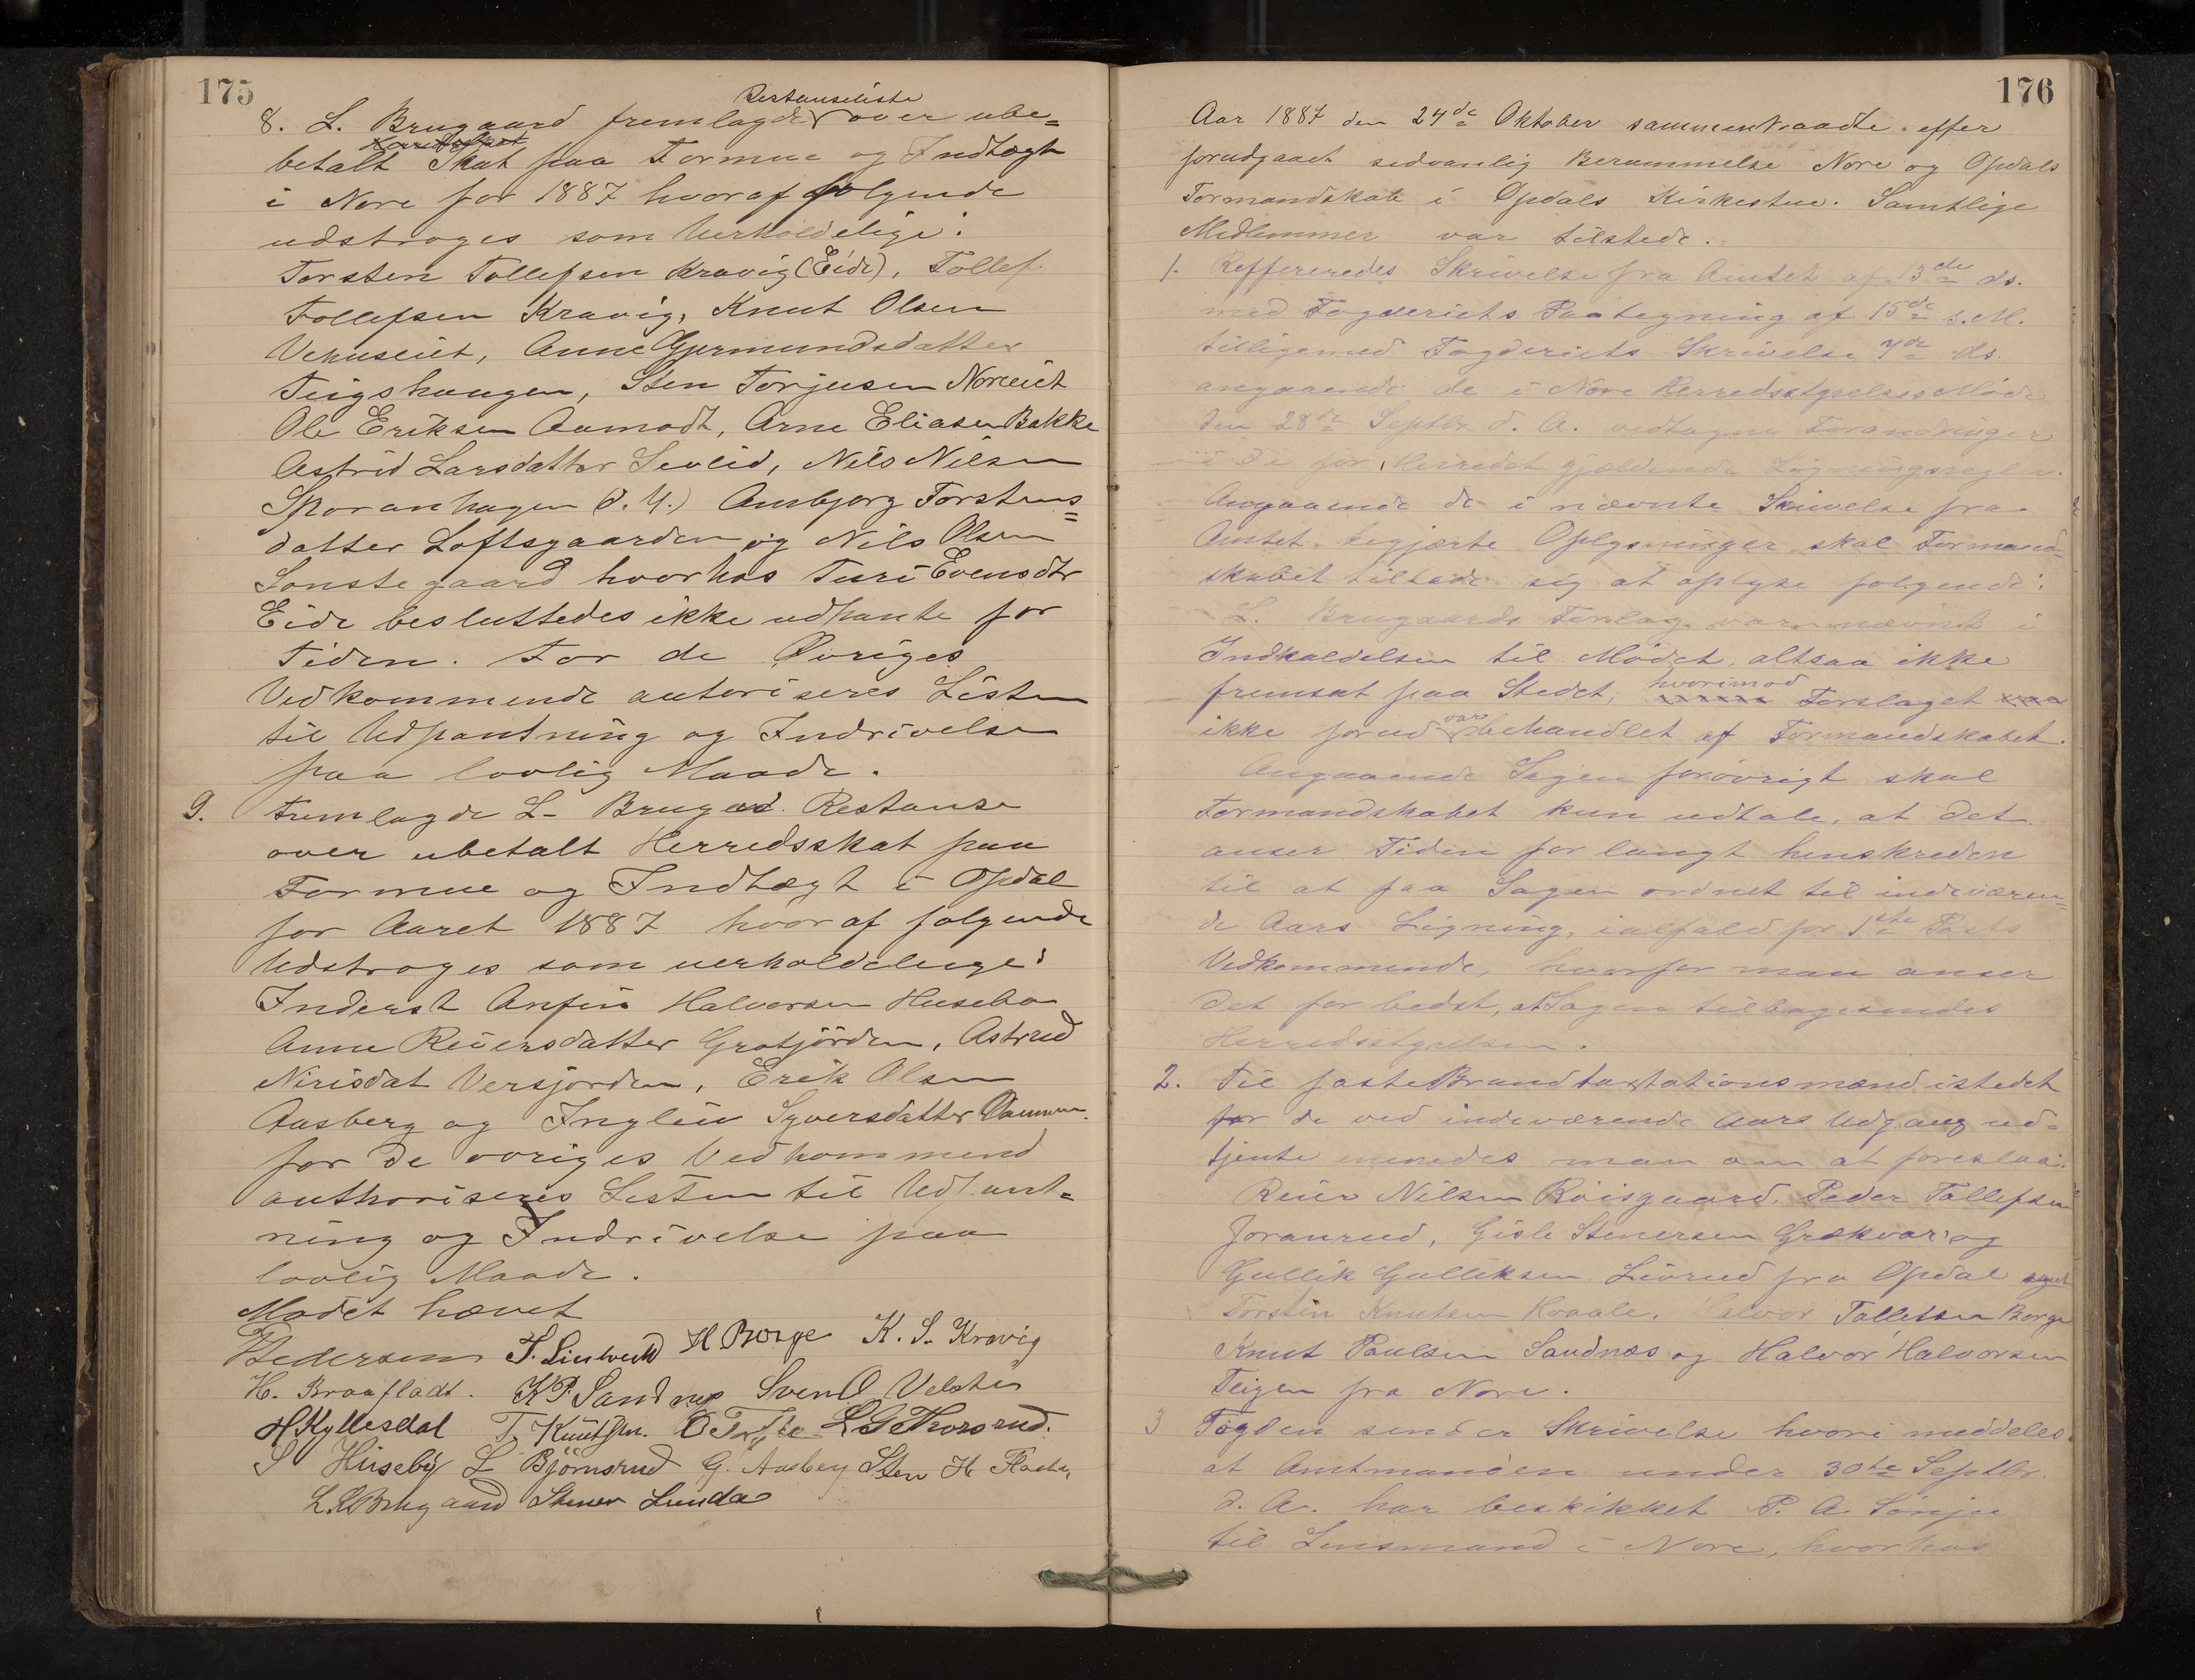 175
Restanseliste
8. L. Brugaard fremlagde over ube=
betalt Skat paa Formue og Indtægt
i Nore for 1887 hvoraf følgende
udstroges som Uerholdelige:
Torsten Tollefsen Kravig (Eide), Tollef
Tollefsen Kravig, Knut Olsen
Vehuseiet, Anne Gjermundsdatter
Teigshaugen, Sten Torjusen Noreeiet
Ole Eriksen Aamodt, Arne Eliasen Bakke
Astrid Larsdatter Sevlid, Nils Nilsen
Skoranhagen (d. y.) Ambjørg Torstens=
datter Loftsgaarden og Nils Olsen
Sønstegaard hvorhos Turi Evensdtr
Eide besluttedes ikke udpante for
Tiden. For de Øvriges
Vedkommende autoriseres Listen
til Udpantning og Indrivelse
paa lovlig Maade.
9. Fremlagde L. Brugard Restanse
over ubetalt Herredsskat paa
Formue og Indtægt i Opdal
for Aaret 1887 hvoraf følgende
Udstroges som uerholdelige:
Inderst Anfin Halvorsen Husebø
Anne Reiersdatter Grøtjorden, Astrid
Nirisdat Versjorden, Erik Olsen
Aasberg og Ingleiv Syversdatter Dammen.
for de øvriges Vedkommend
authoriseres Listen til Udpant=
ning og Indrivelse paa
lovlig Maade.
Mødet hævet
Pedersen T. Lienhvedt H Borge K. S. Kravig
H. Braafladt. K P. Sandnes Sven O Velsti
H Kyllesdal T. Knutsen. L G Thorsrud.
S Huseby L Bjørnsrud G. Aasberg Sten H Fladh,
L. L. Brugaard Stener Lunda
176
Aar 1887 den 24de Oktober sammentraadte efter
forudgaaet sedvanlig Berammelse Nore og Opdals
Formandskab i Opdals Kirkestue. Samtlige
Medlemmer var tilstede.
1. Reffereredes Skrivelse fra Amtet af 13de ds.
med Fogderiets Paategning af 15de s. M.
tilligemed Fogderiets Skrivelse 7de ds.
angaaende de i Nore Herredsstyrelses Møde
den 28de Septbr d. A. vedtagne Forandringer
i de for Herredet gjældende Ligningsregler.
Angaaende de i nævnte Skrivelse fra
Amtet begjærte Oplysninger skal Formand=
skabet tillade sig at oplyse følgende:
L. Brugaards Forslag var nævnt i
Indkaldelsen til Mødet altsaa ikke
fremsat paa Stedet, hvorimod Forslaget
ikke forud var behandlet af Formandskabet.
Angaaende Sagen forøvrigt skal
Formandskabet kun udtale, at det
anser Tiden for langt henskreden
til at faa Sagen ordnet til indeværen=
de Aars Ligning, ialfald for 1ste Posts
Vedkommende, hvorfor man anser
det for bedst, at Sagen tilbagesendes
Herredsstyrelsen.
2. Til faste Brandtaxtationsmænd istedet
for de ved indeværende Aars Udgang ud=
tjente enedes man om at foreslaa:
Reier Nilsen Roisgaard, Peder Tollefsen
Joranrud, Gisle Stenersen Grækvar og
Gullik Gulliksen Liverud fra Opdal samt
Torstin Knutsen Hvaale, Halvor Tollefsen Borge
Knut Paulsen Sandnæs og Halvor Halvorsen
Teigen fra Nore.
3 Fogden sender Skrivelse hvori meddeles
at Amtmanden under 30te Septbr.
d. A. har beskikket P. A. Sønju
til Lensmand i Nore, hvorhos